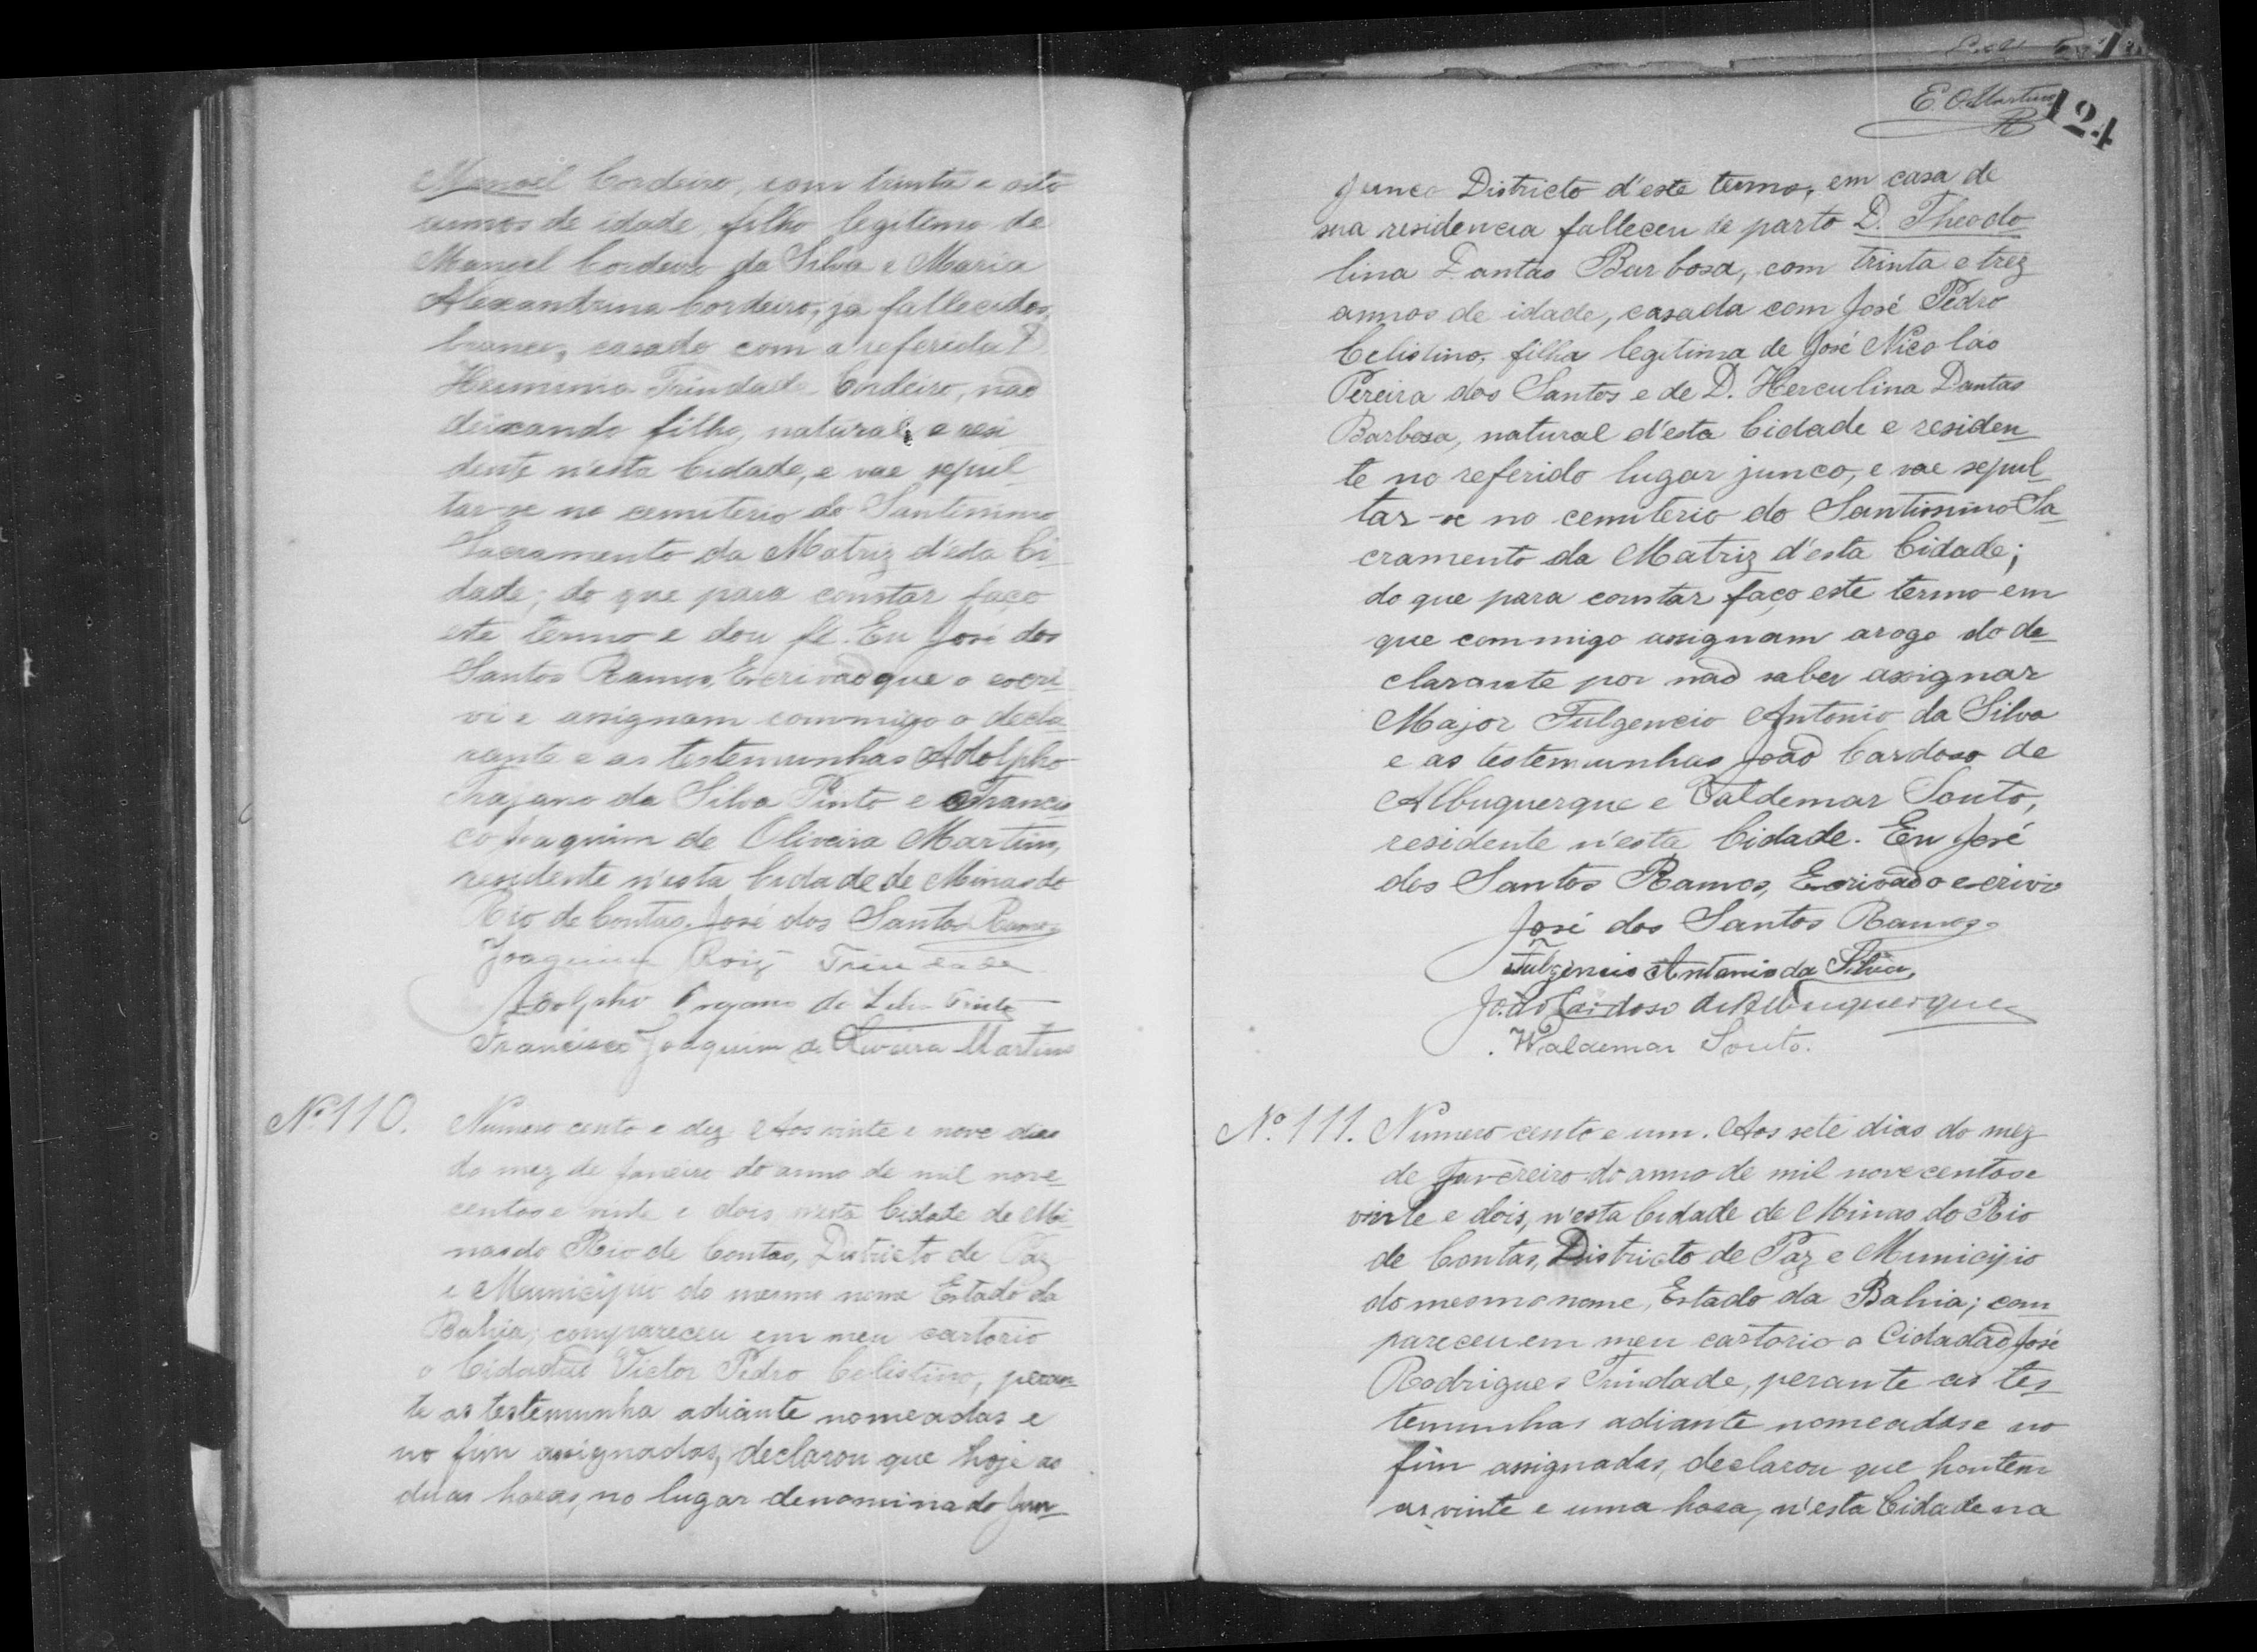 Manoel Cordeiro, com trinta e oito
annos de idade, filho legitimo de
Manoel Cordeiro da Silva e Maria
Alexandrina Cordeiro, já fallecidos,
branco, casado com a referida D.
Herminia Trindade Cordeiro, não
deixando filho, natural e resi
dente n'esta Cidade, e vae sepul
tar-se no cemiterio do Santissimo
Sacramento da Matriz d'esta Ci
dade; do que para constar faço
este termo e dou fé. Eu José dos
Santos Ramos, Escrivão que o escri
vi e assignam commigo o decla
rante e as testemunhas Adolpho
Trajano da Silva Pinto e Francis
co Joaquim de Oliveira Martins,
residente n'esta Cidade de Minas do
Rio de Contas. José dos Santos Ramos
Joaquim Roiz Trindade
Adolpho Trajano da Silva Pinto
Francisco Joaquim de Oliveira Martins
Nº 110. Numero cento e dez. Aos vinte e nove dias
do mez de Janeiro do anno de mil nove
centos e vinte e dois, n'esta Cidade de Mi
nas do Rio de Contas, Districto de Paz
e Municipio do mesmo nome Estado da
Bahia; compareceu em meu cartorio
o Cidadão Victor Pedro Celistino, peran
te as testemunha adiante nomeadas e
no fim assignadas, declarou que hoje as
duas horas, no lugar denominado Jun
E. O. Martins
124
junco Districto d'este termo, em casa de
sua residencia falleceu de parto D. Theodo
lina Dantas Barbosa, com trinta e trez
annos de idade, casada com José Pedro
Celistino, filha legitima de José Nicoláo
Pereira dos Santos e de D. Herculina Dantas
Barbosa, natural d'esta Cidade e residen
te no referido lugar junco, e vae sepul
tar-se no cemiterio do Santissimo Sa
cramento da Matriz d'esta Cidade;
do que para constar faço este termo em
que commigo assignam arogo do de
clarante por não saber assignar
Major Fulgencio Antonio da Silva
e as testemunhas João Cardoso de
Albuquerque e Valdemar Souto,
residente n'esta Cidade. Eu José
dos Santos Ramos, Escrivão o escrivi
José dos Santos Ramos.
Fulgencio Antonio da Silva,
João Cardoso de Albuquerque
Waldemar Souto.
Nº 111. Numero cento e um. Aos sete dias do mez
de Fevereiro do anno de mil novecentos e
vinte e dois, n'esta Cidade de Minas do Rio
de Contas, Districto de Paz e Municipio
do mesmo nome, Estado da Bahia; com
pareceu em meu cartorio o Cidadão José
Rodrigues Trindade, perante as tes
temunhas adiante nomeadas e no
fim assignadas, declarou que hontem
as vinte e uma hora, n'esta Cidade na